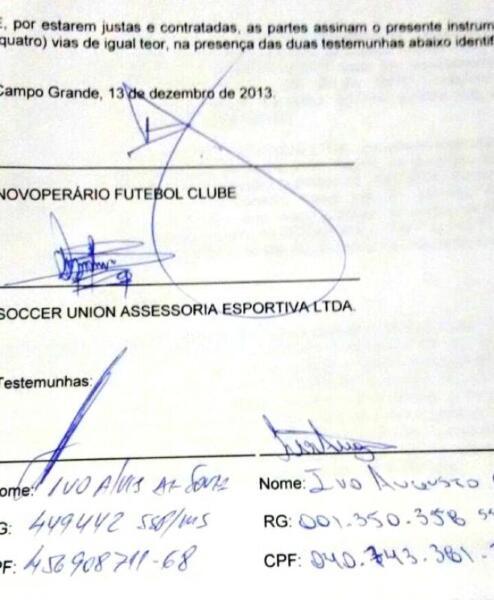 E, por estarem justas e contratadas, as partes assinam o presente instrum
quatro) vias de igual teor, na presença das duas testemunhas abaixo identif
Campo Grande, 13 de dezembro de 2013.
NOVOPERÁRIO FUTEBOL CLUBE
SOCCER UNION ASSESSORIA ESPORTIVA LTDA.
Testemunhas:
ome: IVO Alves
Nome: Ivo Augusto
G: 449442 SSP/MS
RG: 001.350.358 SS
PF: 456908711-68
CPF: 040.743.381-